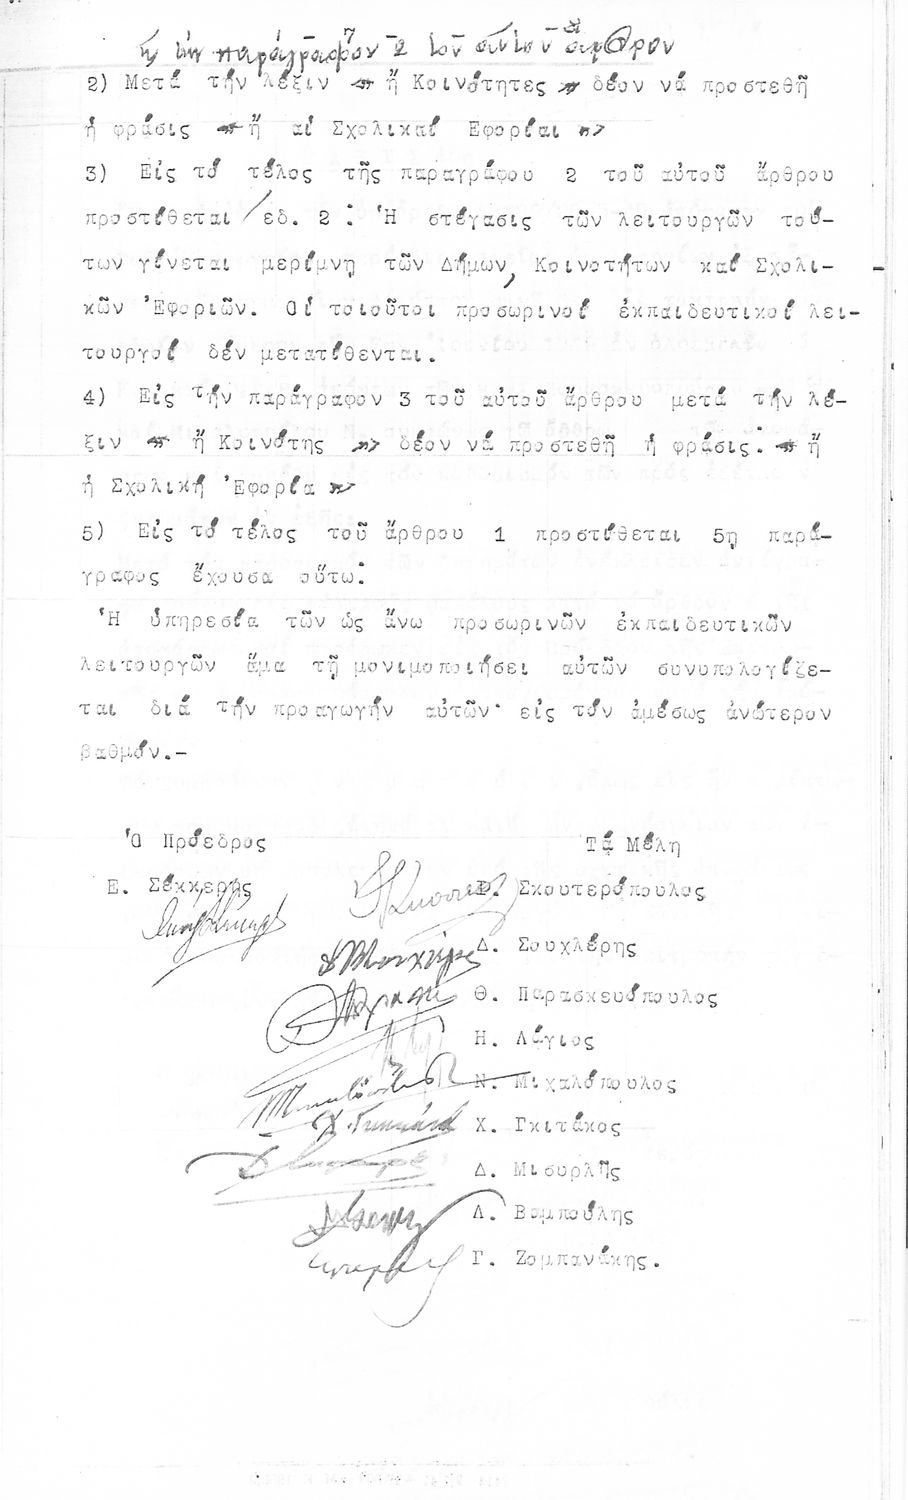 παράγραφον 2 τοῦ αὐτοῦ ἄρθρου
2) Μετά τήν λέξιν « ἤ Κοινότητες » δέον νά προστεθῇ
ἡ φράσις « ἤ αἱ Σχολικαί Ἐφορίαι »
3) Εἰς τό τέλος τῆς παραγράφου 2 τοῦ αὐτοῦ ἄρθρου
προστίθεται / εδ. 2 : Ἡ στέγασις τῶν λειτουργῶν τού-
των γίνεται μερίμνῃ τῶν Δήμων, Κοινοτήτων καί Σχολι-
κῶν Ἐφοριῶν. Οἱ τοιοῦτοι προσωρινοί ἐκπαιδευτικοί λει-
τουργοί δέν μετατίθενται.
4) Εἰς τήν παράγραφον 3 τοῦ αὐτοῦ ἄρθρου μετά τήν λέ-
ξιν « ἤ Κοινότης » δέον νά προστεθῇ ἡ φράσις: « ἤ
ἡ Σχολική Ἐφορία »
5) Εἰς τό τέλος τοῦ ἄρθρου 1 προστίθεται 5η παρά-
γραφος ἔχουσα οὕτω:
Ἡ ὑπηρεσία τῶν ὡς ἄνω προσωρινῶν ἐκπαιδευτικῶν
λειτουργῶν ἅμα τῇ μονιμοποιήσει αὐτῶν συνυπολογίζε-
ται διά τήν προαγωγήν αὐτῶν εἰς τόν ἀμέσως ἀνώτερον
βαθμόν.-
Ὁ Πρόεδρος Τά Μέλη
Ε. Σέκκερης
Σκουτερόπουλος
Δ. Σουχλέρης
Θ. Παρασκευόπουλος
Η. Λάγιος
Ν. Μιχαλόπουλος
Χ. Γκιτάκος
Δ. Μισυρλῆς
Λ. Βαμπούλης
Γ. Ζομπανάκης.